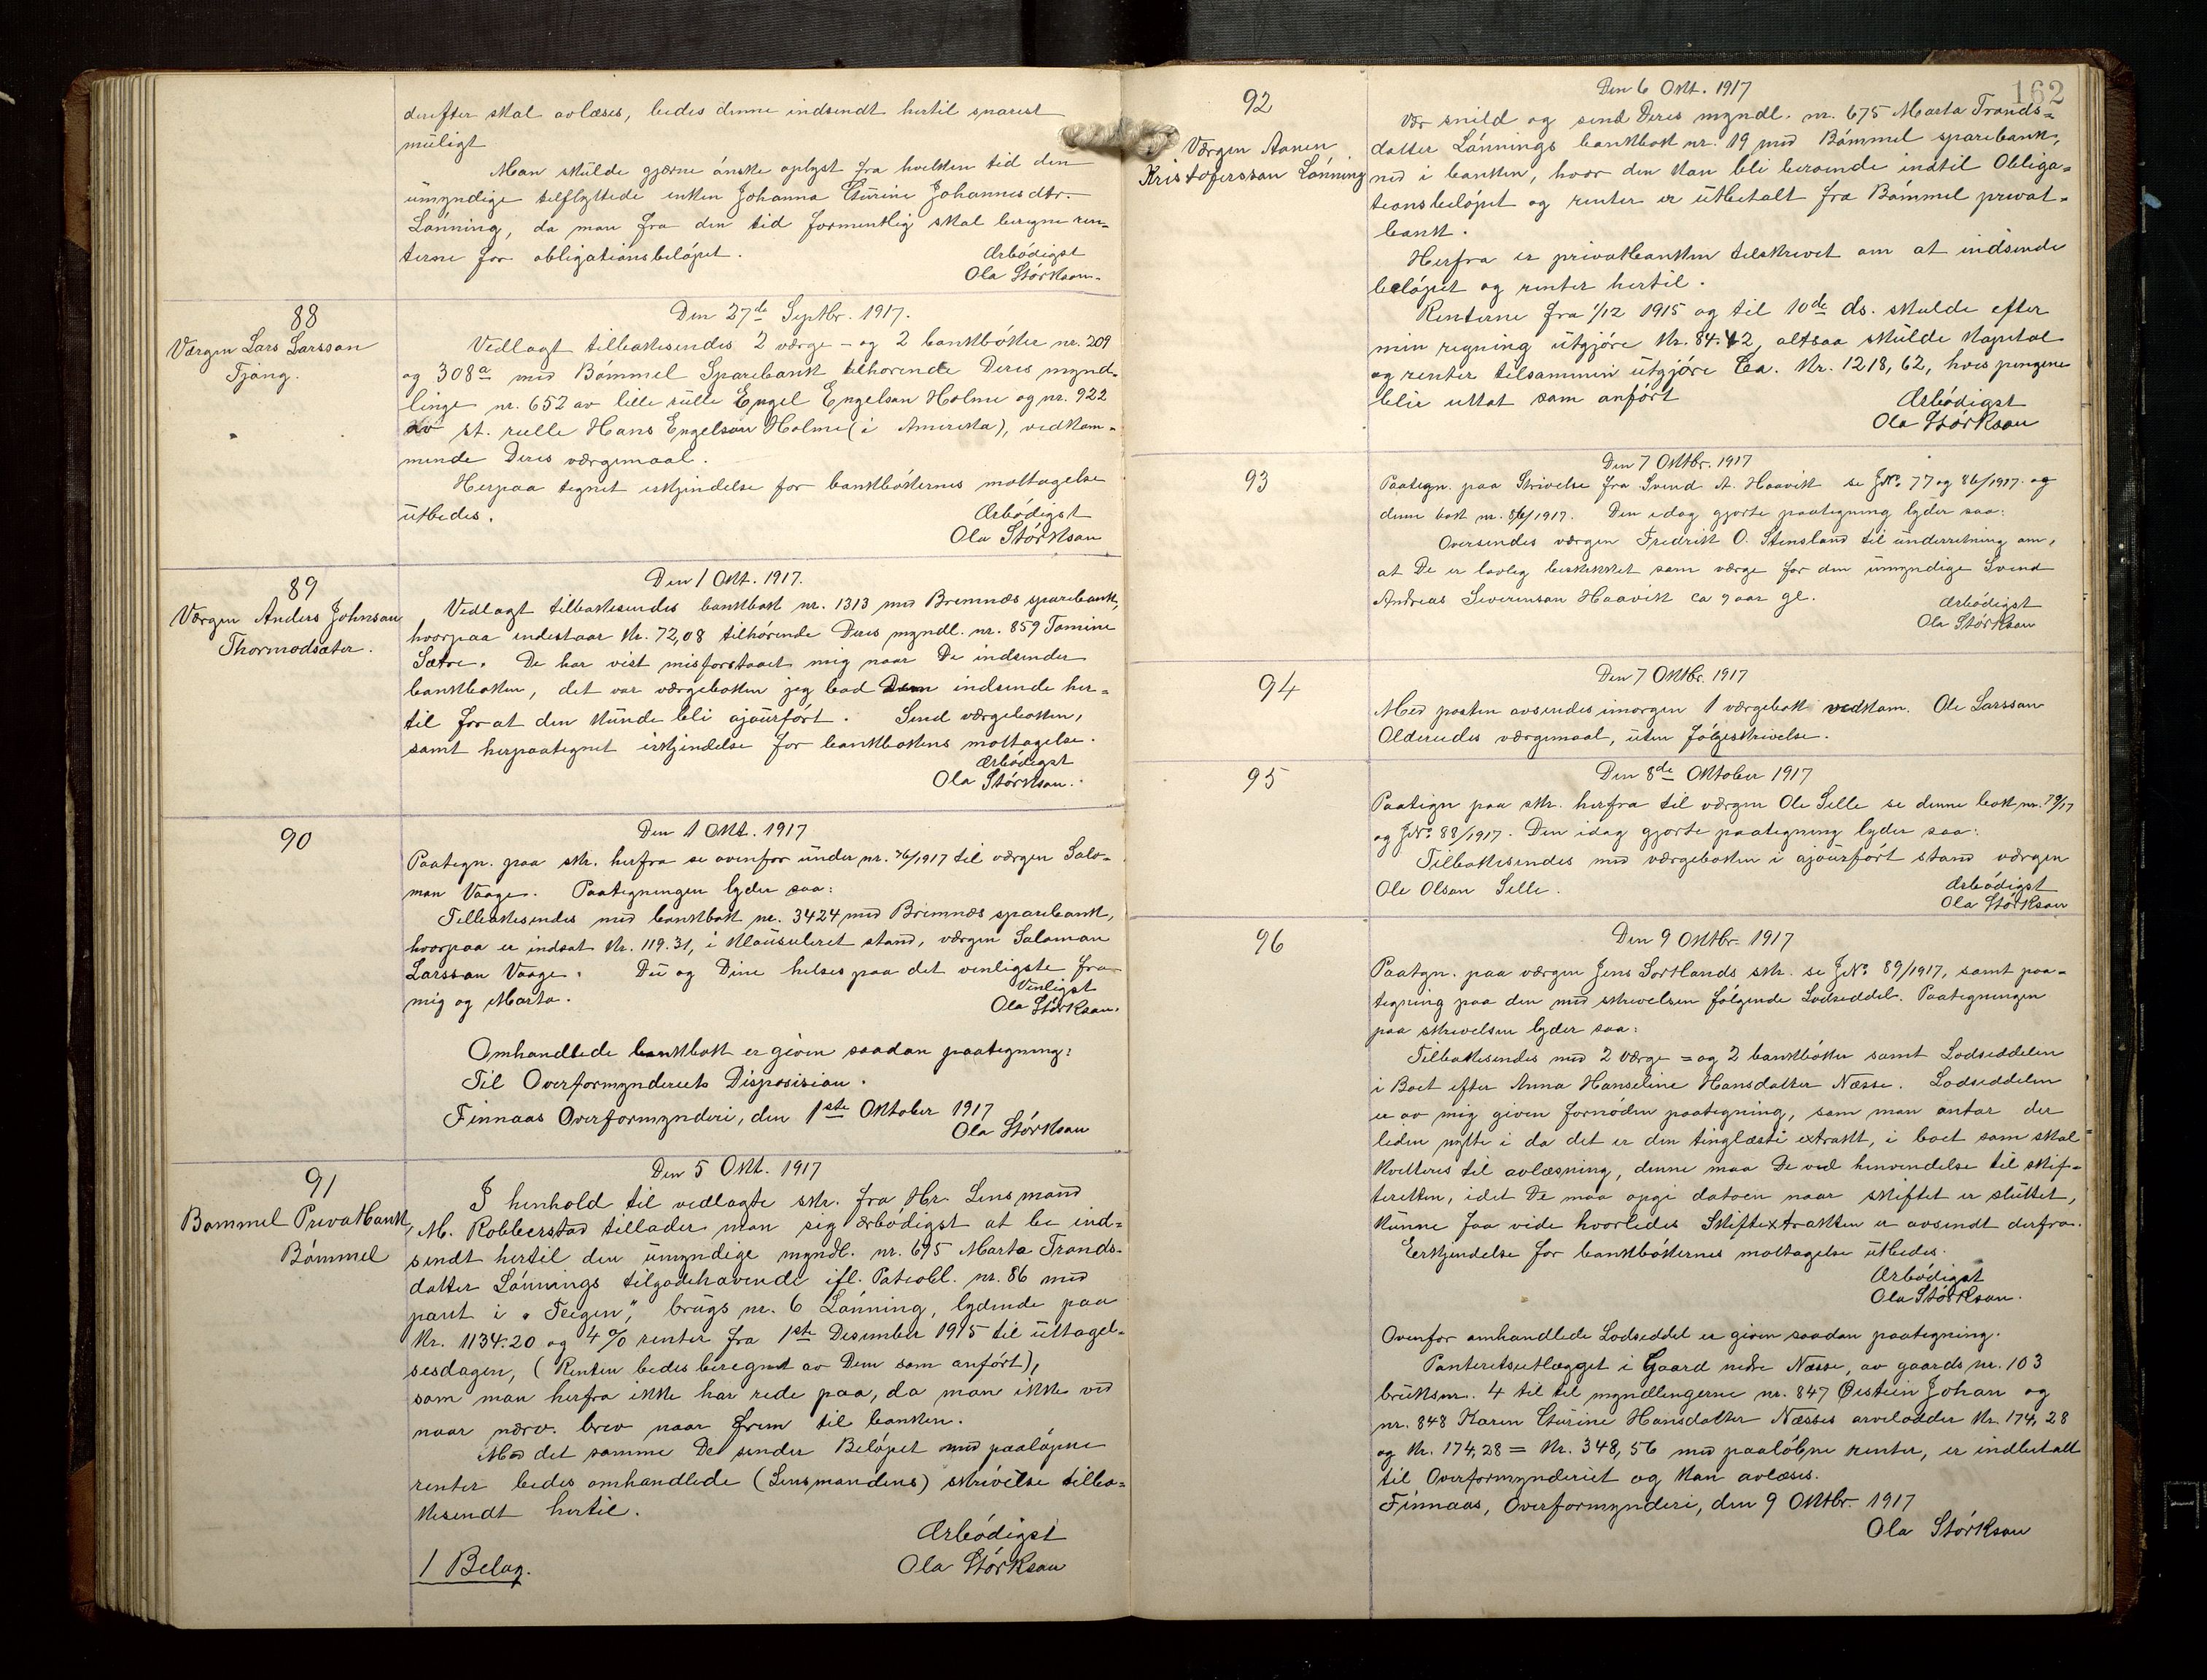 derefter skal avlæses, bedes denne indsendt hertil snarest
muligt
Man skulde gjærne ønske oplyst fra hvilken tid den
umyndige tilflyttede enken Johanna Turine Johannesdtr.
Lønning, da man fra den tid formentlig skal beregne ren-
terne for obligationsbeløpet.
Ærbødigst
Ola Størkson
88
Værgen Lars Larsson
Tjong.
Den 27de Septbr. 1917.
Vedlagt tilbakesendes 2 værge- og 2 bankbøker nr. 209
og 308a med Bømmel Sparebank tilhørende Deres mynd-
linge nr. 652 av lille rulle Engel Engelson Holme og nr. 922
av st. rulle Hans Engelson Holme (i Amerika), vedkom-
mende Deres værgemaal.
Herpaa tegnet erkjendelse for bankbøkernes mottagelse
utbedes.
Ærbødigst
Ola Størkson
89
Værgen Anders Johnson
Thormodsæter.
Den 1 Okt. 1917.
Vedlagt tilbakesendes bankbok nr. 1313 med Bremnæs sparebank,
hvorpaa indestaar Kr. 72,08 tilhørende Deres myndl. nr. 859 Tomine
Sætre. De har vist misforstaaet mig naar De indsender
bankboken, det var værgeboken jeg bad Dem indsende her-
til for at den kunde bli ajourført. Send værgeboken,
samt herpaategnet erkjendelse for bankbokens mottagelse.
Ærbødigst
Ola Størkson.
90
Den 1 Okt. 1917
Paategn. paa skr. herfra se ovenfor under nr. 76/1917 til værgen Salo-
mon Vaage. Paategningen lyder saa:
Tilbakesendes med bankbok nr. 3424 med Bremnæs sparebank,
hvorpaa er indsat Kr. 119.31, i klausuleret stand, værgen Salomon
Larsson Vaage. Du og Dine helses paa det venligste fra
mig og Marta.
Venligst
Ola Størkson.
Omhandlede bankbok er given saadan paategning:
Til Overformynderiets Disposision.
Finnaas Overformynderi, den 1ste Oktober 1917
Ola Størkson
91
Bømmel Privatbank,
Bømmel
Den 5 Okt. 1917
I henhold til vedlagte skr. fra Hr. Lensmand
M. Robberstad tillader man sig ærbødigst at be ind-
sendt hertil den umyndige myndl. nr. 675 Marta Tronds-
datter Lønnings tilgodehavende ifl. Panteobl. nr. 86 med
pant i "Teigen", brugs nr. 6 Lønning, lydende paa
Kr. 1134.20 og 4% renter fra 1ste Desember 1915 til uttagel-
sesdagen, (Renten bedes beregnet av Dem som anført),
som man herfra ikke har rede paa, da man ikke ved
naar nærv. brev naar frem til banken.
Med det samme De sender Beløpet med paaløpne
renter bedes omhandlede (Lensmandens) skrivelse tilba-
kesendt hertil.
Ærbødigst
Ola Størkson
1 Belag.
162
92
Værgen Aanen
Kristoffersson Lønning
Den 6 Okt. 1917
Vær snild og send Deres myndl. nr. 675 Marta Tronds-
datter Lønnings bankbok nr. 19 med Bømmel sparebank,
ned i banken, hvor den kan bli beroende indtil Obliga-
tionsbeløpet og renter er utbetalt fra Bømmel privat-
bank.
Herfra er privatbanken tilskrevet om at indsende
beløpet og renter hertil.
Renterne fra 1/12 1915 og til 10de ds. skulde efter
min regning utgjøre Kr. 84.42, altsaa skulde Kapital
og renter tilsammen utgjøre Ca. Kr. 1218,62, hvis pengene
blir uttat som anført
Ærbødigst
Ola Størkson
93
Den 7 Oktbr. 1917
Paategn. paa Skrivelse fra Svend A. Haavik se JNo. 77 og 86/1917 og
denne bok nr. 86/1917. Den idag gjorte paategning lyder saa:
Oversendes værgen Fredrik O. Stensland til underretning om,
at De er lovlig beskikket som værge for den umyndige Svend
Andreas Severinson Haavik ca 9 aar gl.
Ærbødigst
Ola Størkson
94
Den 7 Oktbr. 1917
Med posten avsendes imorgen 1 værgebok vedkom. Ole Larsson
Eldereides værgemaal, uten følgeskrivelse.
95
Den 8de Oktober 1917
Paategn paa skr. herfra til værgen Ole Selle se denne bok nr. 79/17
og JNo. 88/1917. Den idag gjorte paategning lyder saa:
Tilbakesendes med værgeboken i ajourført stand værgen
Ole Olson Selle.
Ærbødigst
Ola Størkson
96
Den 9 Oktbr. 1917
Paategn. paa værgen Jens Sortlands skr. se JNo. 89/1917, samt paa-
tegning paa den med skrivelsen følgende Lodseddel. Paategningen
paa skrivelsen lyder saa:
Tilbakesendes med 2 værge- og 2 bankbøker samt Lodseddelen
i Boet efter Anna Hanseline Hansdatter Næsse. Lodseddelen
er av mig given fornøden paategning, som man antar der
liden nytte i da det er den tinglæste extrakt, i boet som skal
kvitteres til avlæsning, denne maa De ved henvendelse til skif-
teretten, idet De maa opgi datoen naar skiftet er sluttet,
kunne faa vide hvorledes Skifteextrakten er avsendt derfra.
Erkjendelse for bankbøkernes mottagelse utbedes.
Ærbødigst
Ola Størkson.
Ovenfor omhandlede Lodseddel er given saadan paategning.
Panteretsutlægget i Gaard nedre Næsse, av gaards nr. 103
bruksnr. 4 til til myndlingerne nr. 847 Øistein Johan og
nr. 848 Karen Turine Hansdatter Næsses arvelodder Kr. 174,28
og Kr. 174,28 = Kr. 348,56 med paaløbne renter, er indbetalt
til Overformynderiet og kan avlæses.
Finnaas, Overformynderi, den 9 Oktbr. 1917
Ola Størkson